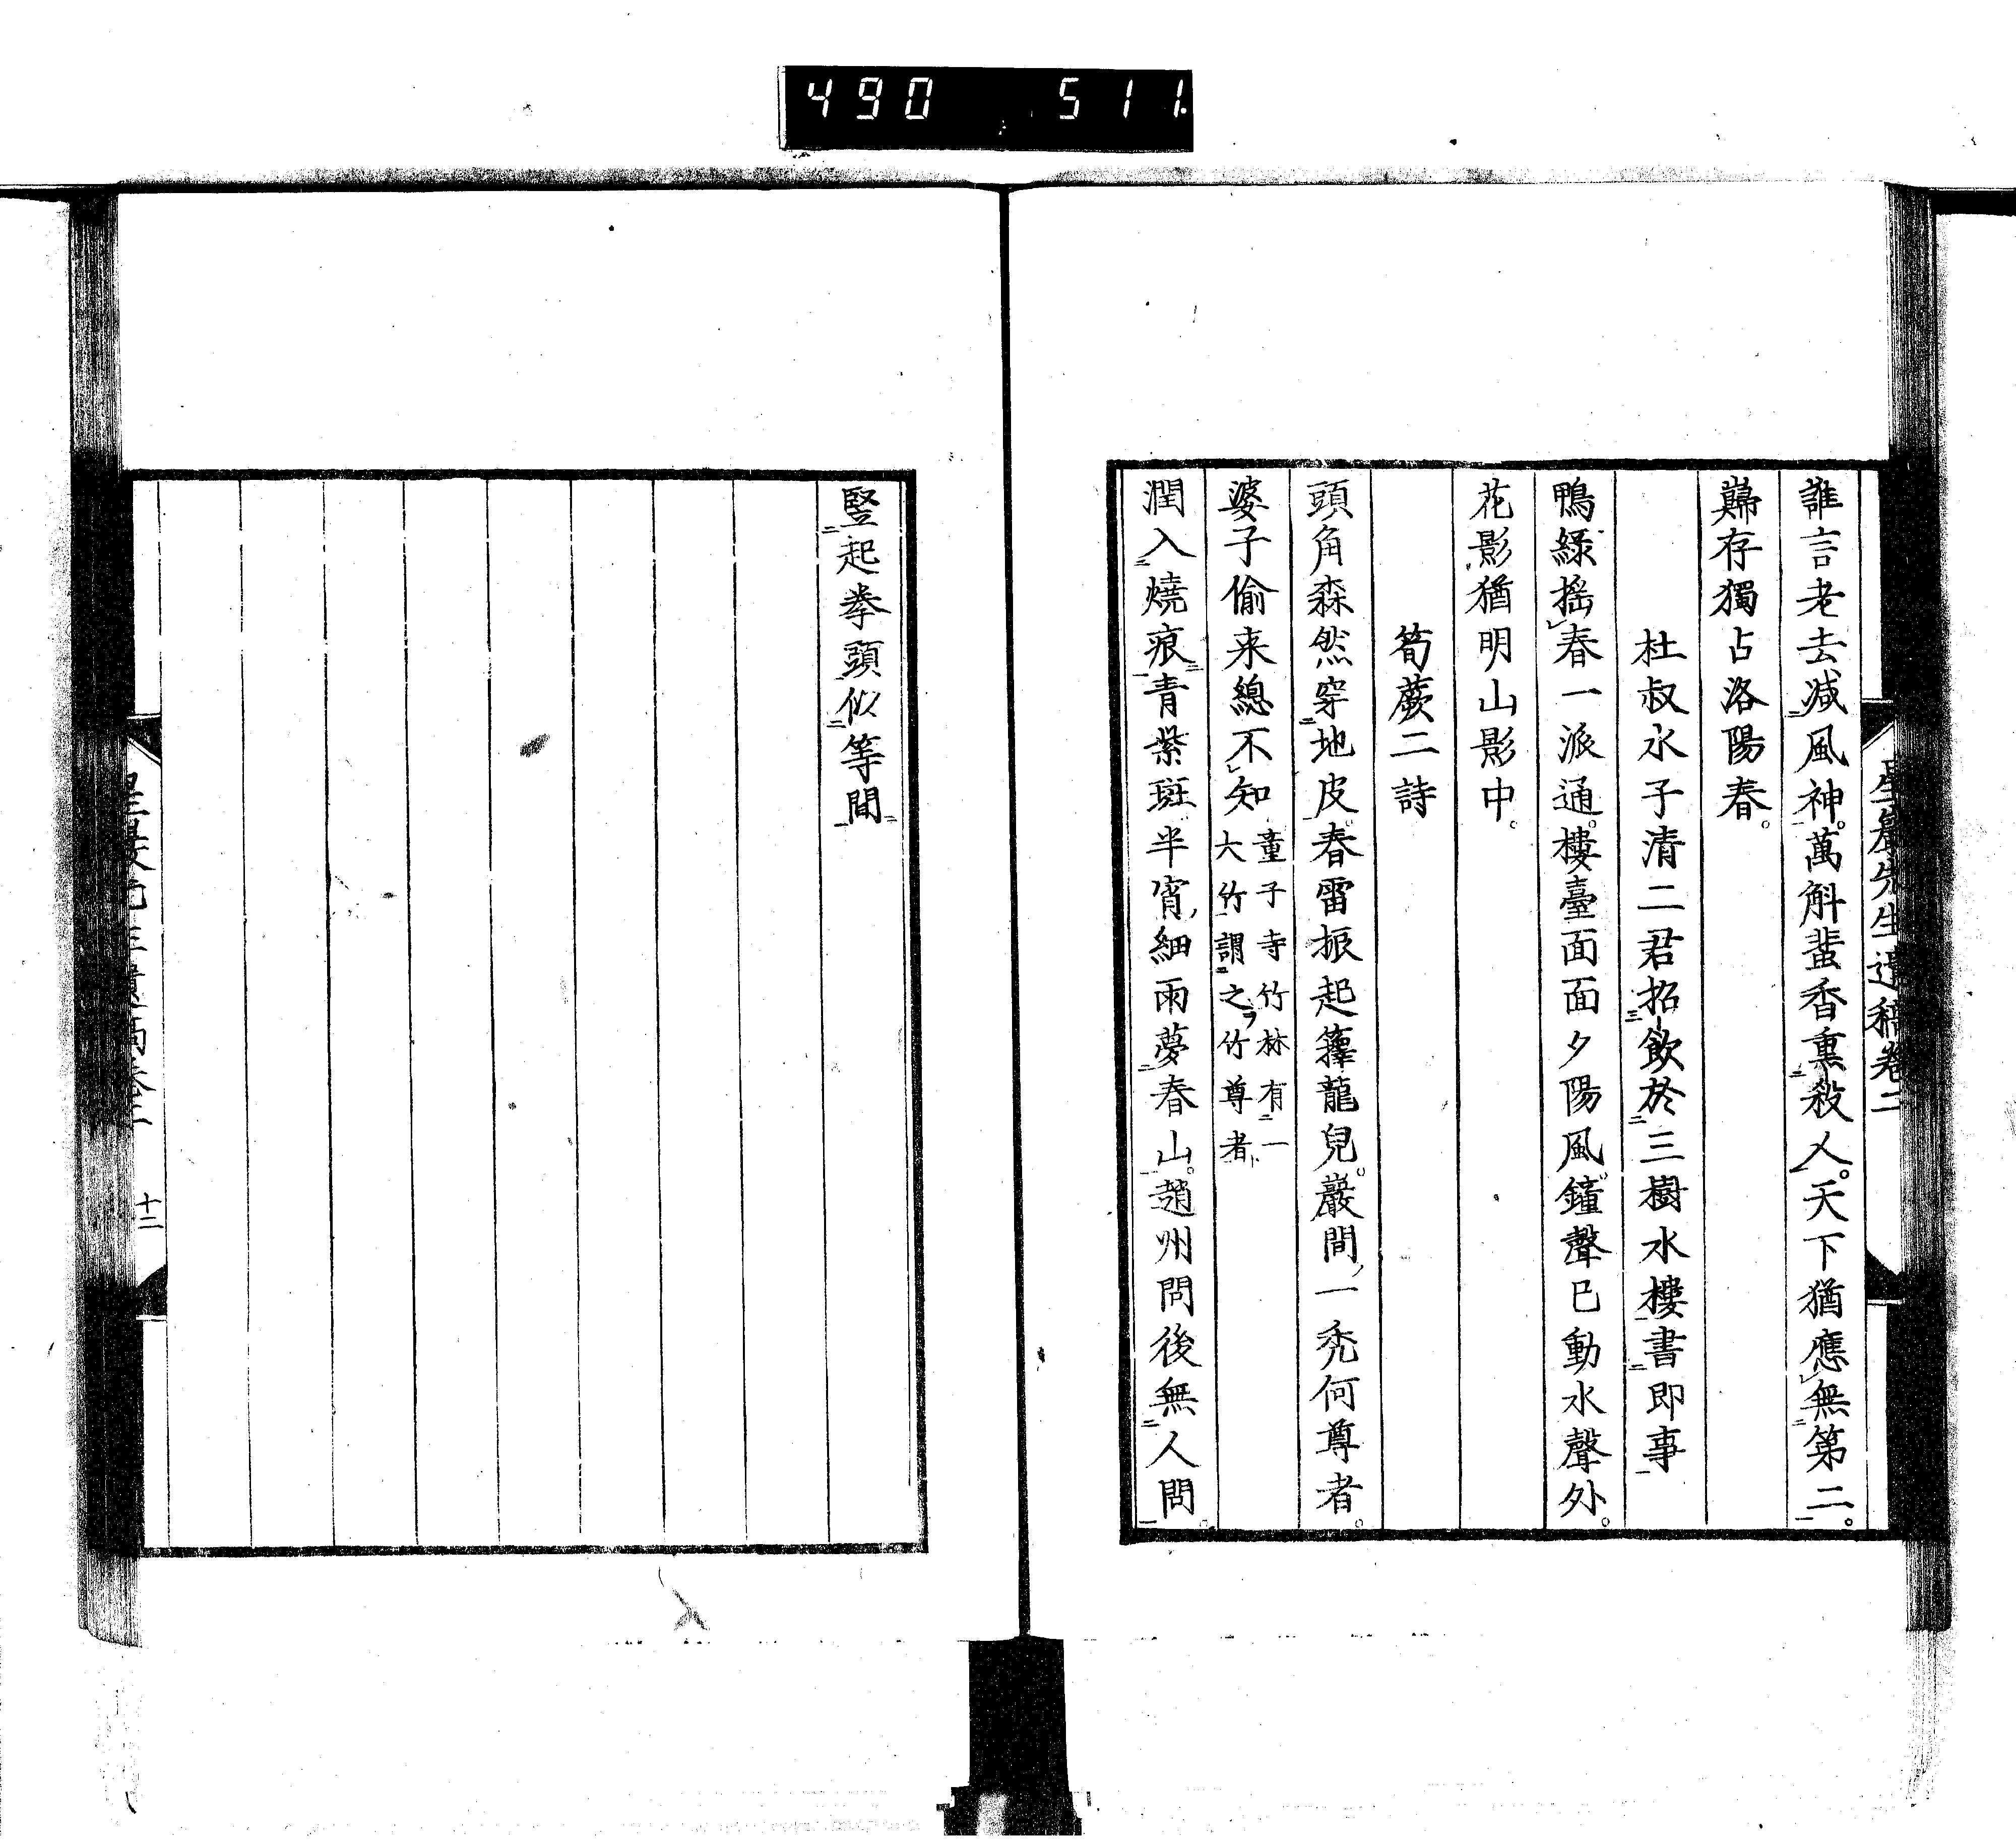 490 511
誰言老去減風神。萬斛蜚香熏殺人。天下猶應無第二。
巋存獨占洛陽春。
杜叔水子清二君招飲於三樹水樓書即事
鴨緑搖春一派通。樓臺面面夕陽風。鐘聲已動水聲外。
花影猶明山影中。
筍蕨二詩
頭角森然穿地皮。春雷振起籜龍兒。巖間一禿何尊者。
婆子偷来總不知 童子寺竹林有一
大竹謂之竹尊者
潤入燒痕青紫斑半宵細雨夢春山。趙州問後無人問。
豎起拳頭似等閒
十二